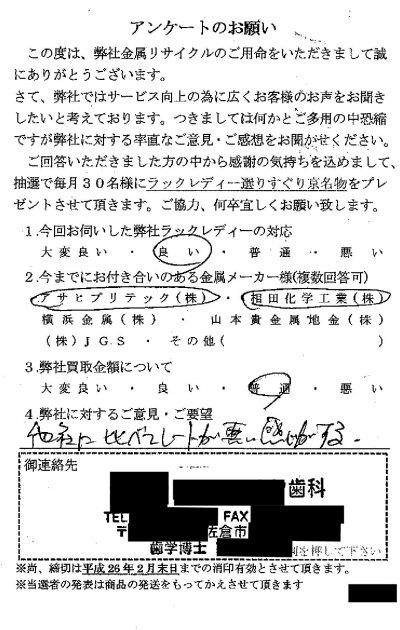 アンケートのお願い
この度は、弊社金属リサイクルのご用命をいただきまして誠
にありがとうございます。
さて、弊社ではサービス向上の為に広くお客様のお声をお聞き
したいと考えております。つきましては何かとご多用の中恐縮
ですが弊社に対する率直なご意見・ご感想をお聞かせください。
ご回答いただきました方の中から感謝の気持ちを込めまして、
抽選で毎月30名様にラックレディー選りすぐり京名物をプレ
ゼントさせて頂きます。ご協力、何卒宜しくお願い致します。
1.今回お伺いした弊社ラックレディーの対応
大変良い ・ 良い ・ 普通 ・ 悪い
2.今までにお付き合いのある金属メーカー様(複数回答可)
アサヒプリテック(株) ・ 相田化学工業(株)
横浜金属(株) ・ 山本貴金属地金(株)
(株)JGS ・ その他( )
3.弊社買取金額について
大変良い ・ 良い ・ 普通 ・ 悪い
4.弊社に対するご意見・ご要望
他社に比べてレートが悪い感じがする。
御連絡先
歯科
TEL FAX
〒 佐倉市
歯学博士
を押して下さい
※尚、締切は平成26年2月末日までの消印有効とさせて頂きます。
※当選者の発表は商品の発送をもってかえさせて頂きます